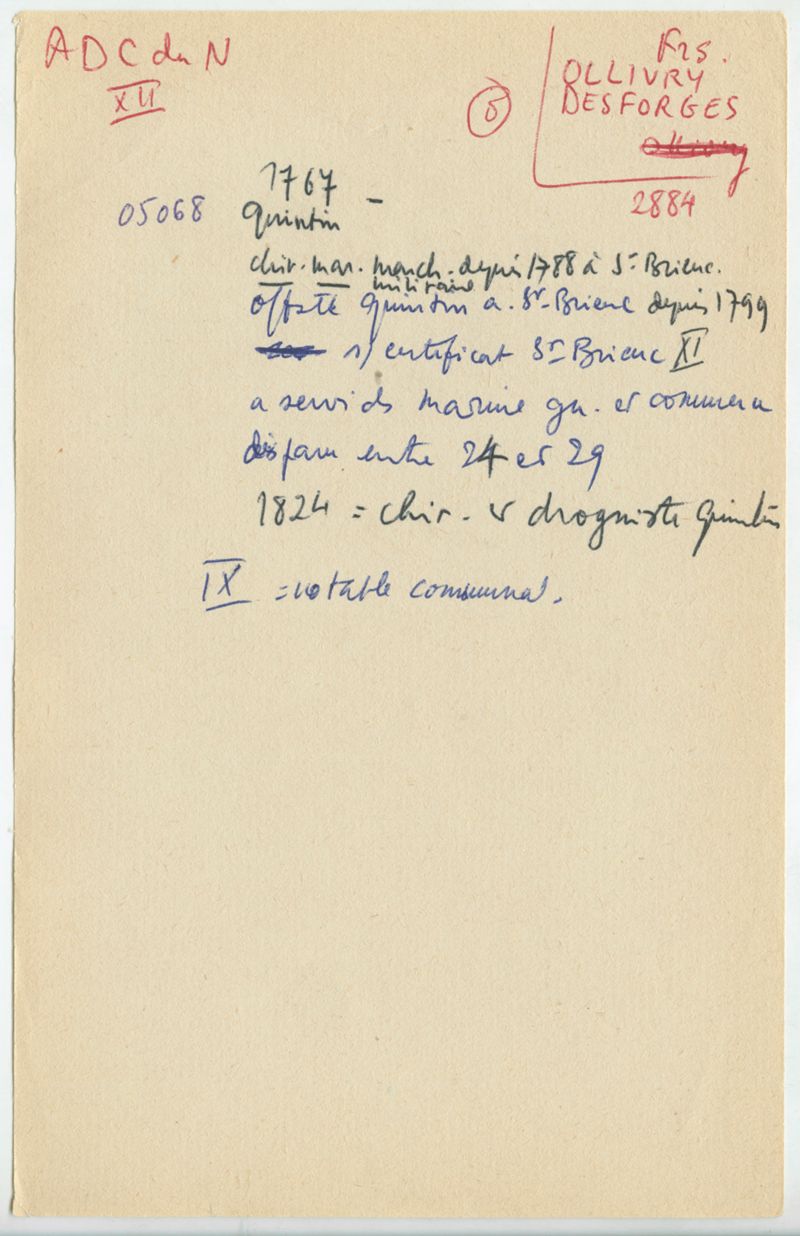 ADC du N
XII
Frs.
OLLIVRY
DESFORGES
Ollivry
5
2884
05068
1767 -
Quintin
chir. mar. march. depuis 1788 à St Brieuc.
militaire
off. sté Quintin a. St-Brieuc depuis 1799
s/ certificat St Brieuc XI
a servi ds marine gu. et commerce
disparu entre 24 et 29
1824 = chir. et droguiste Quintin
IX = notable communal.